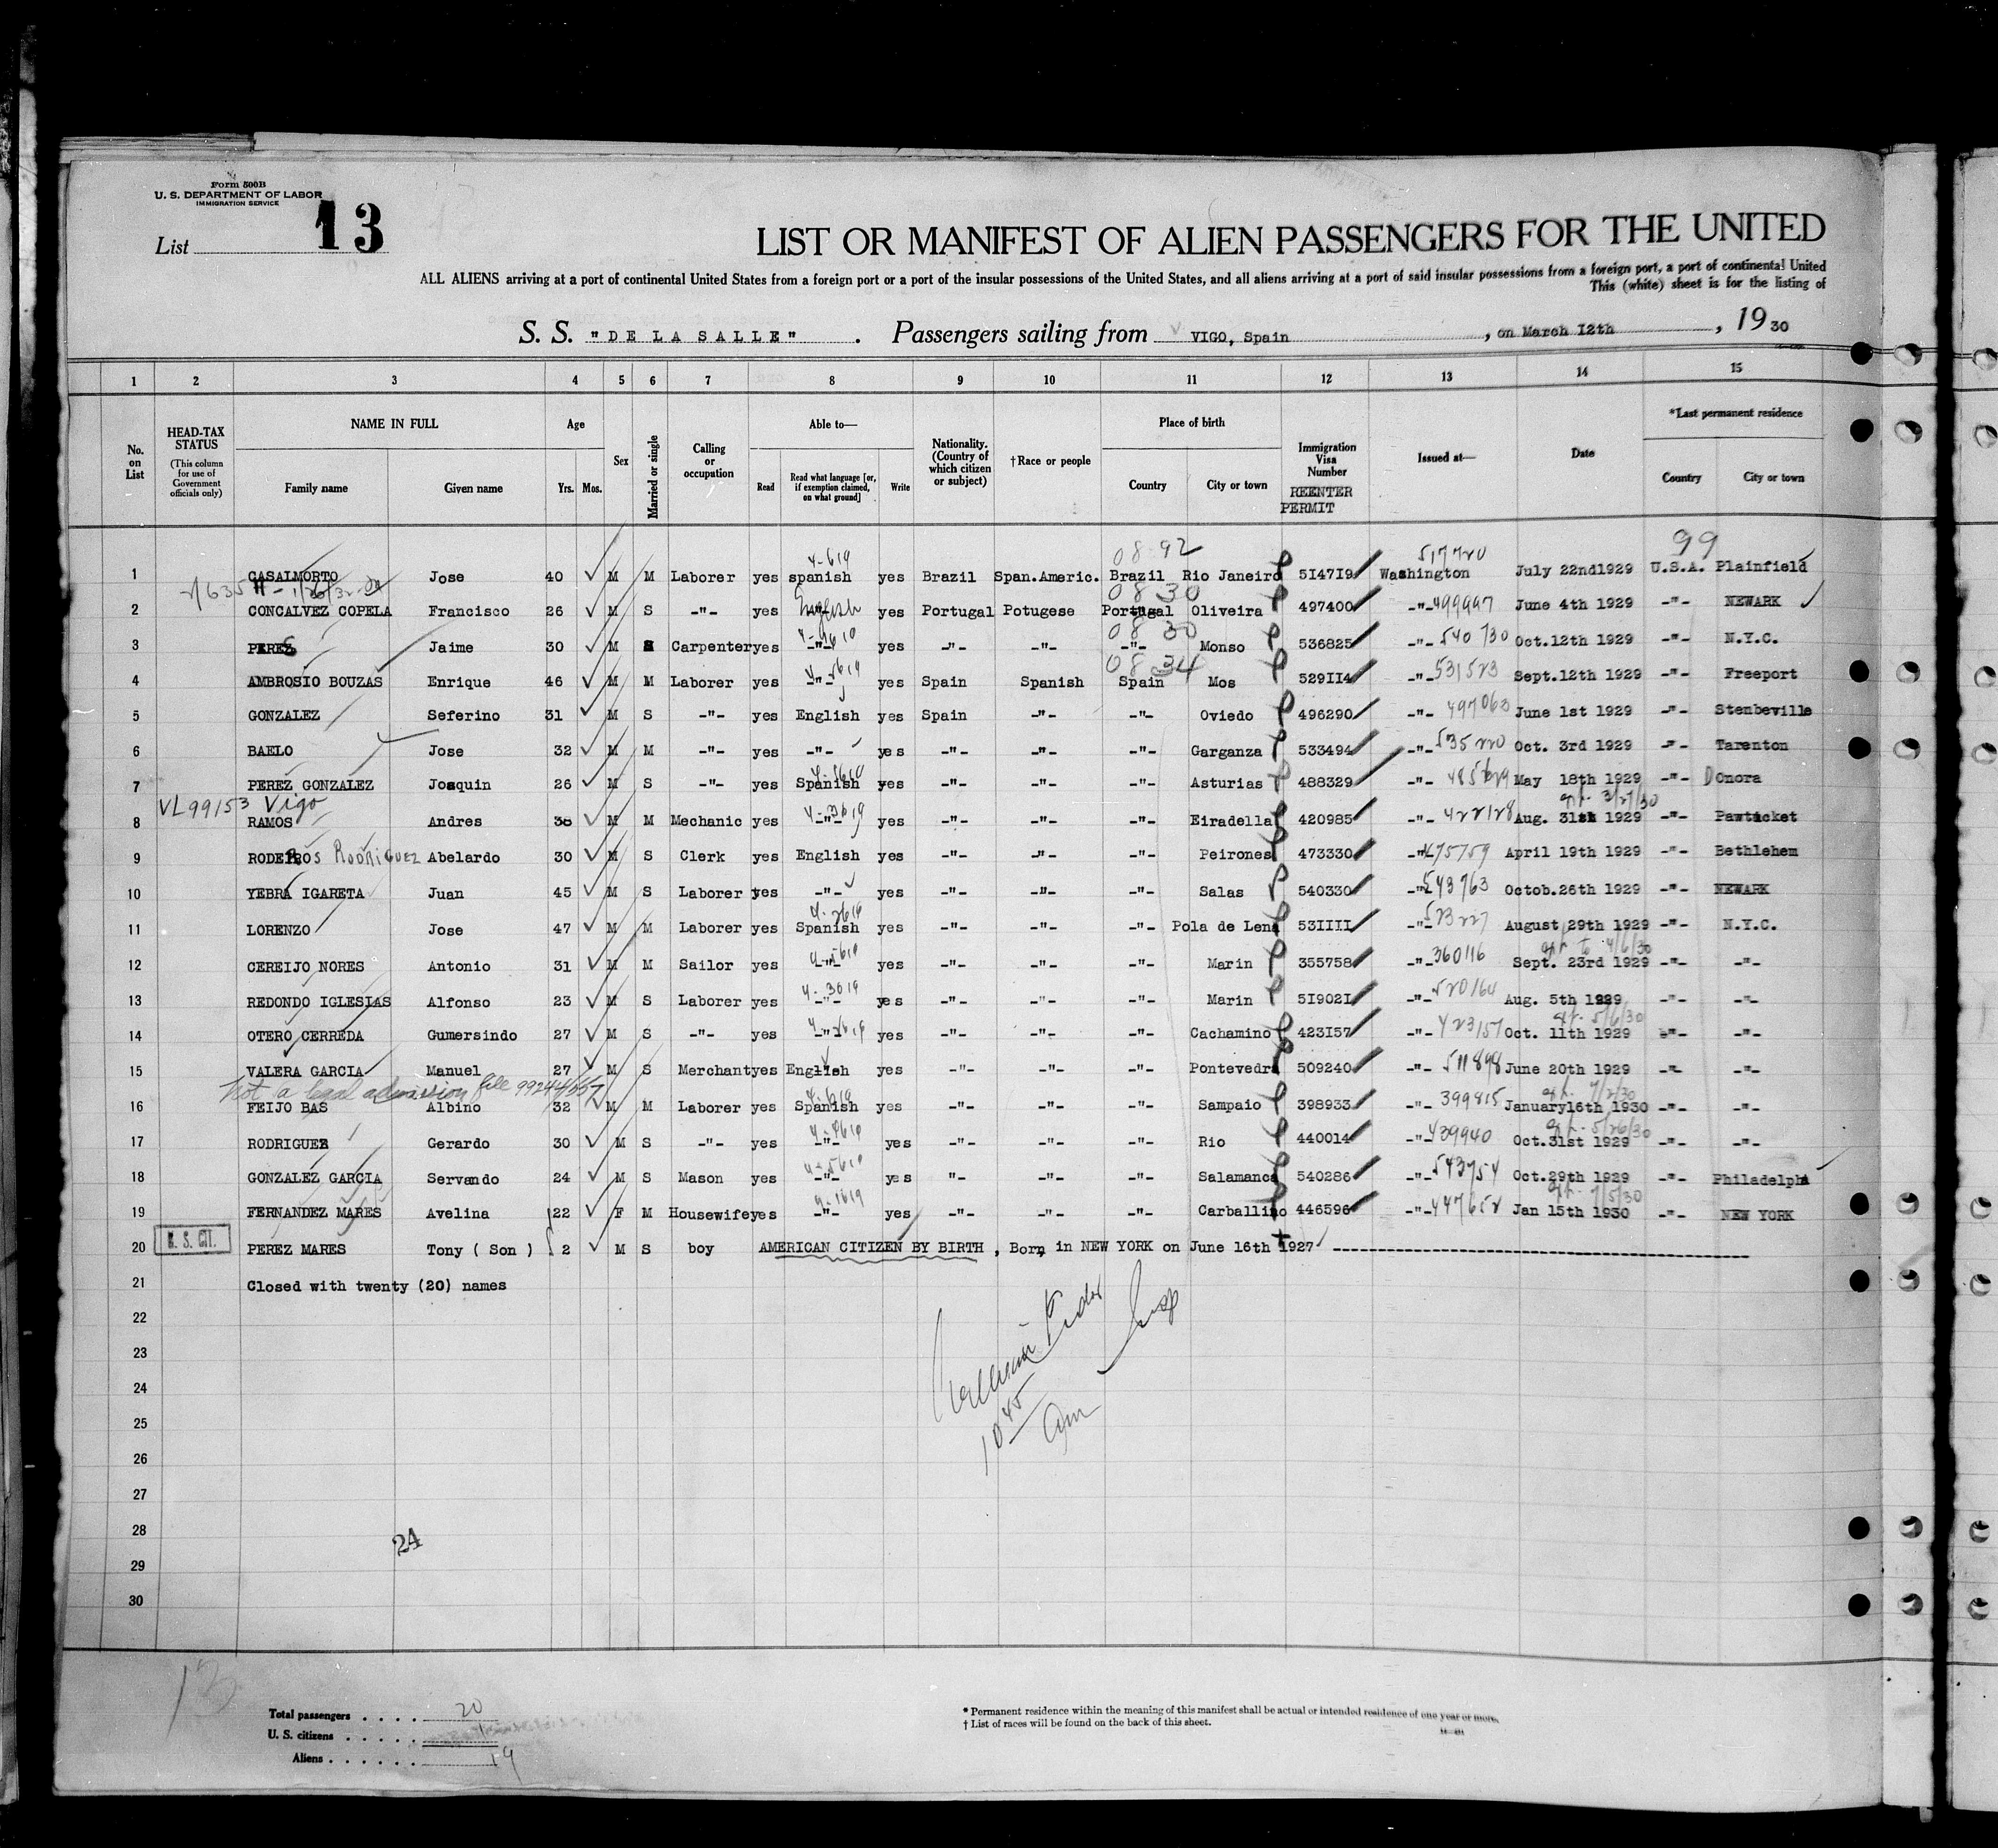 Form 500B
U. S. DEPARTMENT OF LABOR
IMMIGRATION SERVICE
List 13
LIST OR MANIFEST OF ALIEN PASSENGERS FOR THE UNITED
ALL ALIENS arriving at a port of continental United States from a foreign port or a port of the insular possessions of the United States, and all aliens arriving at a port of said insular possessions from a foreign port, a port of continental United
This (white) sheet is for the listing of
S. S. "DE LA SALLE" . Passengers sailing from VIGO, Spain , on March I2th , 19 30
1 2 3 4 5 6 7 8 9 10 11 12 13 14 15
No. on List
HEAD-TAX STATUS
(This column for use of Government officials only)
NAME IN FULL
Family name Given name
Age
Yrs. Mos.
Sex
Married or single
Calling or occupation
Able to—
Read Read what language [or, if exemption claimed, on what ground] Write
Nationality. (Country of which citizen or subject)
†Race or people
Place of birth
Country City or town
Immigration Visa Number
REENTER PERMIT
Issued at—
Date
*Last permanent residence
Country City or town
08 92 517720 99
1 CASALMORTO Jose 40 M M Laborer yes spanish yes Brazil Span.Americ. Brazil Rio Janeiro 5I47I9 Washington July 22nd1929 U.S.A. Plainfield
08 30
2 CONCALVEZ COPELA Francisco 26 M S -"- yes English yes Portugal Potugese Portugal Oliveira 497400 -"- 499997 June 4th 1929 -"- NEWARK
08 30
3 PERES Jaime 30 M Carpenter yes -"- yes -"- -"- -"- Monso 536825 -"- 540730 Oct.12th 1929 -"- N.Y.C.
08 34
4 AMBROSIO BOUZAS Enrique 46 M M Laborer yes -"- yes Spain Spanish Spain Mos 529II4 -"- 531523 Sept.12th 1929 -"- Freeport
5 GONZALEZ Seferino 31 M S -"- yes English yes Spain -"- -"- Oviedo 496290 -"- 497063 June 1st 1929 -"- Stenbeville
6 BAELO Jose 32 M M -"- yes -"- yes -"- -"- -"- Garganza 533494 -"- 535220 Oct. 3rd 1929 -"- Tarenton
7 PEREZ GONZALEZ Joaquin 26 M S -"- yes Spanish yes -"- -"- -"- Asturias 488329 -"- May 18th 1929 -"- Donora
VL99153 Vigo 3/27/30
8 RAMOS Andres 38 M M Mechanic yes -"- yes -"- -"- -"- Eiradella 420985 -"- 422128 Aug. 31st 1929 -"- Pawtucket
9 RODEIROS RODRIGUEZ Abelardo 30 M S Clerk yes English yes -"- -"- -"- Peirones 473330 -"- 475759 April 19th 1929 -"- Bethlehem
10 YEBRA IGARETA Juan 45 M S Laborer yes -"- yes -"- -"- -"- Salas 540330 -"- 543763 Octob.26th 1929 -"- NEWARK
11 LORENZO Jose 47 M M Laborer yes Spanish yes -"- -"- -"- Pola de Lena 53IIII -"- 523227 August 29th 1929 -"- N.Y.C.
4/6/30
12 CEREIJO NORES Antonio 31 M M Sailor yes -"- yes -"- -"- -"- Marin 355758 -"- 360116 Sept. 23rd 1929 -"- -"-
13 REDONDO IGLESIAS Alfonso 23 M S Laborer yes -"- yes -"- -"- -"- Marin 5I902I -"- 520164 Aug. 5th 1929 -"- -"-
5/6/30
14 OTERO CERREDA Gumersindo 27 M S -"- yes -"- yes -"- -"- -"- Cachamino 423I57 -"- 423157 Oct. 11th 1929 -"- -"-
15 VALERA GARCIA Manuel 27 M S Merchant yes English yes -"- -"- -"- Pontevedra 509240 -"- 511898 June 20th 1929 -"- -"-
Not a legal admission file 7/2/30
16 FEIJO BAS Albino 32 M M Laborer yes Spanish yes -"- -"- -"- Sampaio 398933 -"- 399815 January16th 1930 -"- -"-
5/26/30
17 RODRIGUEZ Gerardo 30 M S -"- yes -"- yes -"- -"- -"- Rio 440014 -"- 439940 Oct.31st 1929 -"- -"-
18 GONZALEZ GARCIA Servando 24 M S Mason yes -"- yes "- -"- -"- Salamanca 540286 -"- 543754 Oct.29th 1929 -"- Philadelpha
7/5/30
19 FERNANDEZ MARES Avelina 22 F M Housewife yes -"- yes -"- -"- -"- Carballino 446596 -"- 447652 Jan 15th 1930 -"- NEW YORK
20 U. S. CIT. PEREZ MARES Tony ( Son ) 2 M S boy AMERICAN CITIZEN BY BIRTH , Born in NEW YORK on June 16th 1927
21 Closed with twenty (20) names
22
23
24
25
10 45
am
26
27
28
24
29
30
13
Total passengers . . . . 20
U. S. citizens . . . . . 1
Aliens . . . . . . 19
* Permanent residence within the meaning of this manifest shall be actual or intended residence of one year or more.
† List of races will be found on the back of this sheet.